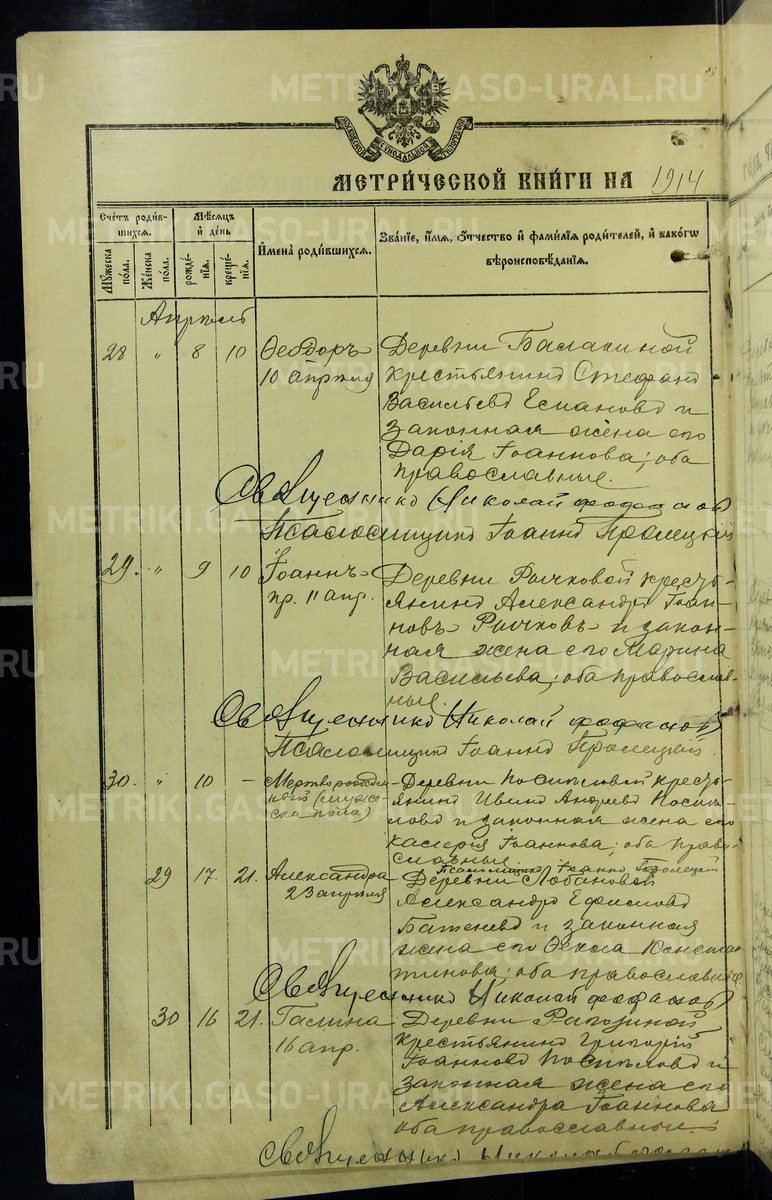 МЕТРИ́ЧЕСКОЙ КНИ́ГИ НА 1914
Сче́тъ роди́в-
шихся.
Мѣ́сяцъ
и де́нь
Мꙋ́жеска
пола.
Же́нска
пола.
рожде́-
нїя.
креще́-
нїя.
И҆мена̀ роди́вшихся.
Зва́нїе, и҆́мя, о҆́тчество и҆ фами́лїя роди́телей, и҆ како́гѡ
вѣроисповѣ́данїя.
Апрѣль
28 „ 8 10 Ѳеодоръ
10 апрѣля
Деревни Балакиной
крестьянинъ Стефанъ
Васильевъ Еспановъ и
законная жена его
Дарія Іоаннова; оба
православные.
Священникъ Николай
Псаломщикъ Іоаннъ
29. „ 9 10 Іоаннъ
пр. 11 апр.
Деревни Рычковой кресть-
янинъ Александръ Іоан-
новъ Рычковъ и закон-
ная жена его Марина
Васильева; оба православ-
ные.
Священникъ Николай
Псаломщикъ Іоаннъ
30. „ 10 – Мертворожден-
ный (муже-
ска пола)
Деревни Поспѣловой кресть-
янинъ Иванъ Андреевъ Поспѣ-
ловъ и законная жена его
Калерія Іоаннова; оба право-
славные.
Псаломщикъ Іоаннъ
29 17. 21. Александра
23 апрѣля
Деревни Лобановой
Александръ Ефимовъ
Батеневъ и законная
жена его Ѳекла Констан-
тинова; оба православные
Священникъ Николай
30 16 21. Галина
16 апр.
Деревни Рагозиной
крестьянинъ Григорій
Іоанновъ Поспѣловъ и
законная жена его
Александра Іоаннова
оба православные
Священникъ
METRIKI.GASO-URAL.RU